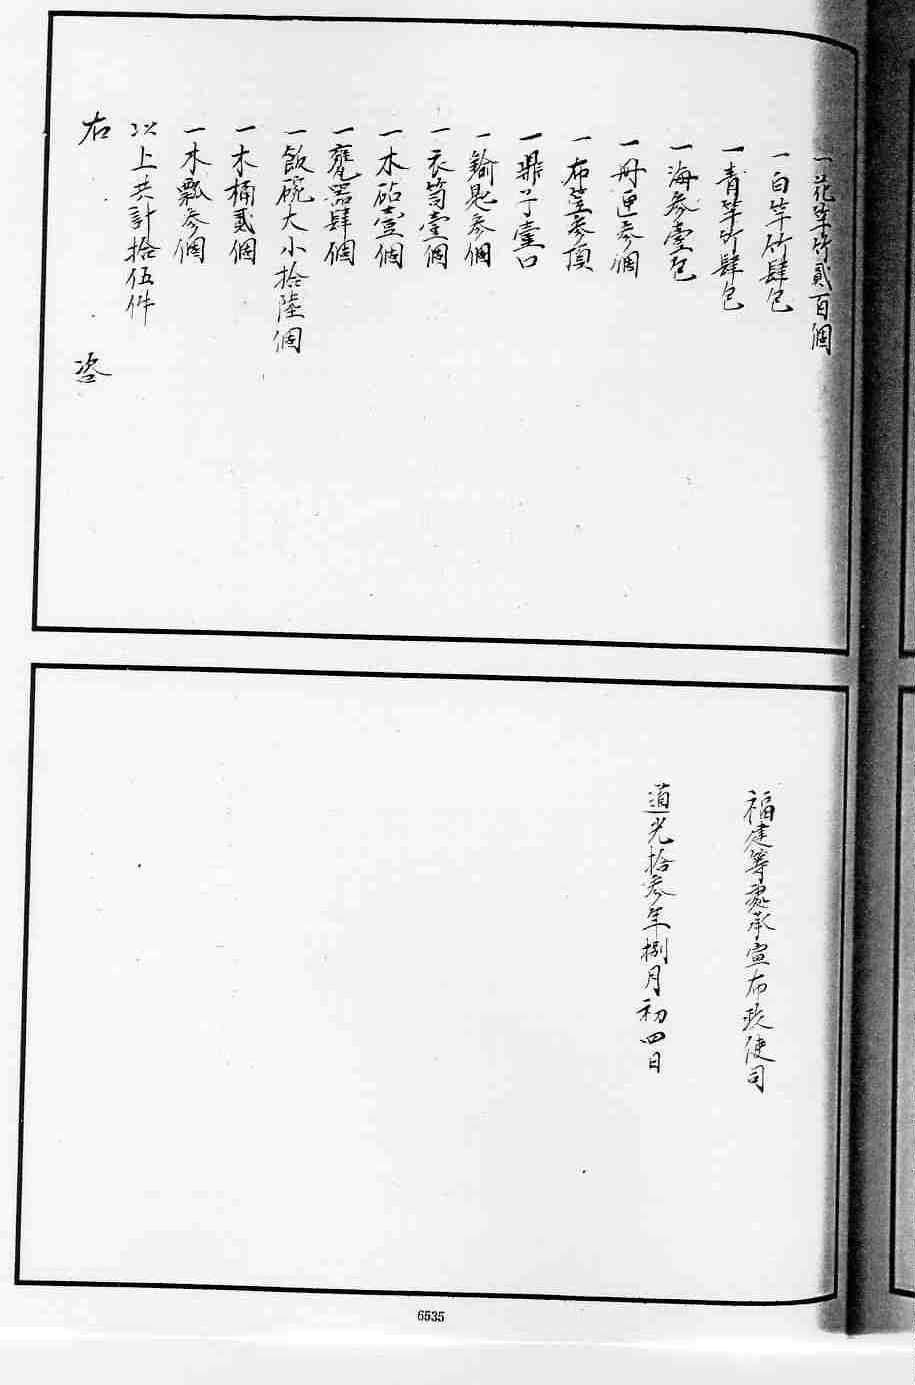 一花竿竹貳百個
一白竿竹肆包
一青竿竹肆包
一海參壹包
一冊匣參個
一布笠參頂
一鼎子壹口
一鍮匙參個
一衣笥壹個
一木砧壹個
一甕器肆個
一飯碗大小拾陸個
一木桶貳個
一木瓢參個
以上共計拾伍件
右 咨
福建等處承宣布政使司
道光拾參年捌月初四日
6535